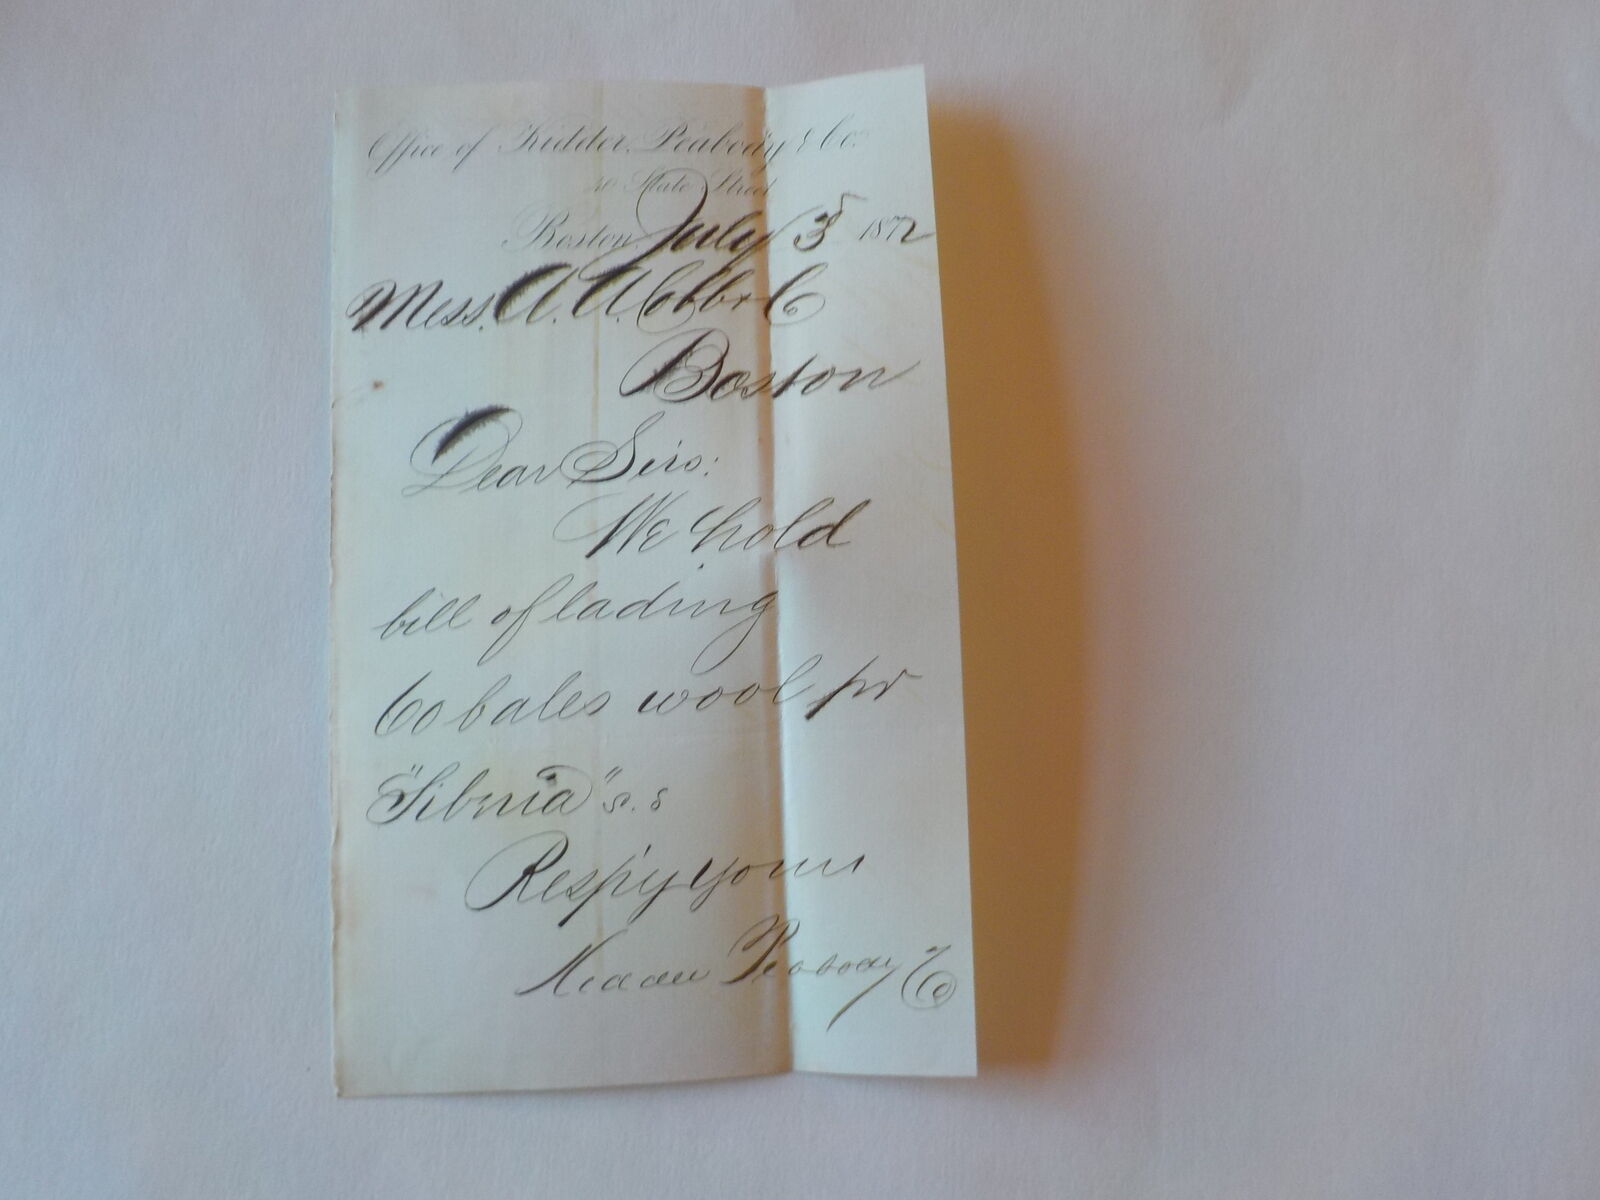 Office of Kidder, Peabody & Co.
40 State Street
Boston, July 3d 1872
Mess. A. A. Cobb & Co
Boston
Dear Sirs:
We hold
bill of lading
60 bales wool pr
"Siberia" s.s
Resp'y yours
Kidder Peabody & Co